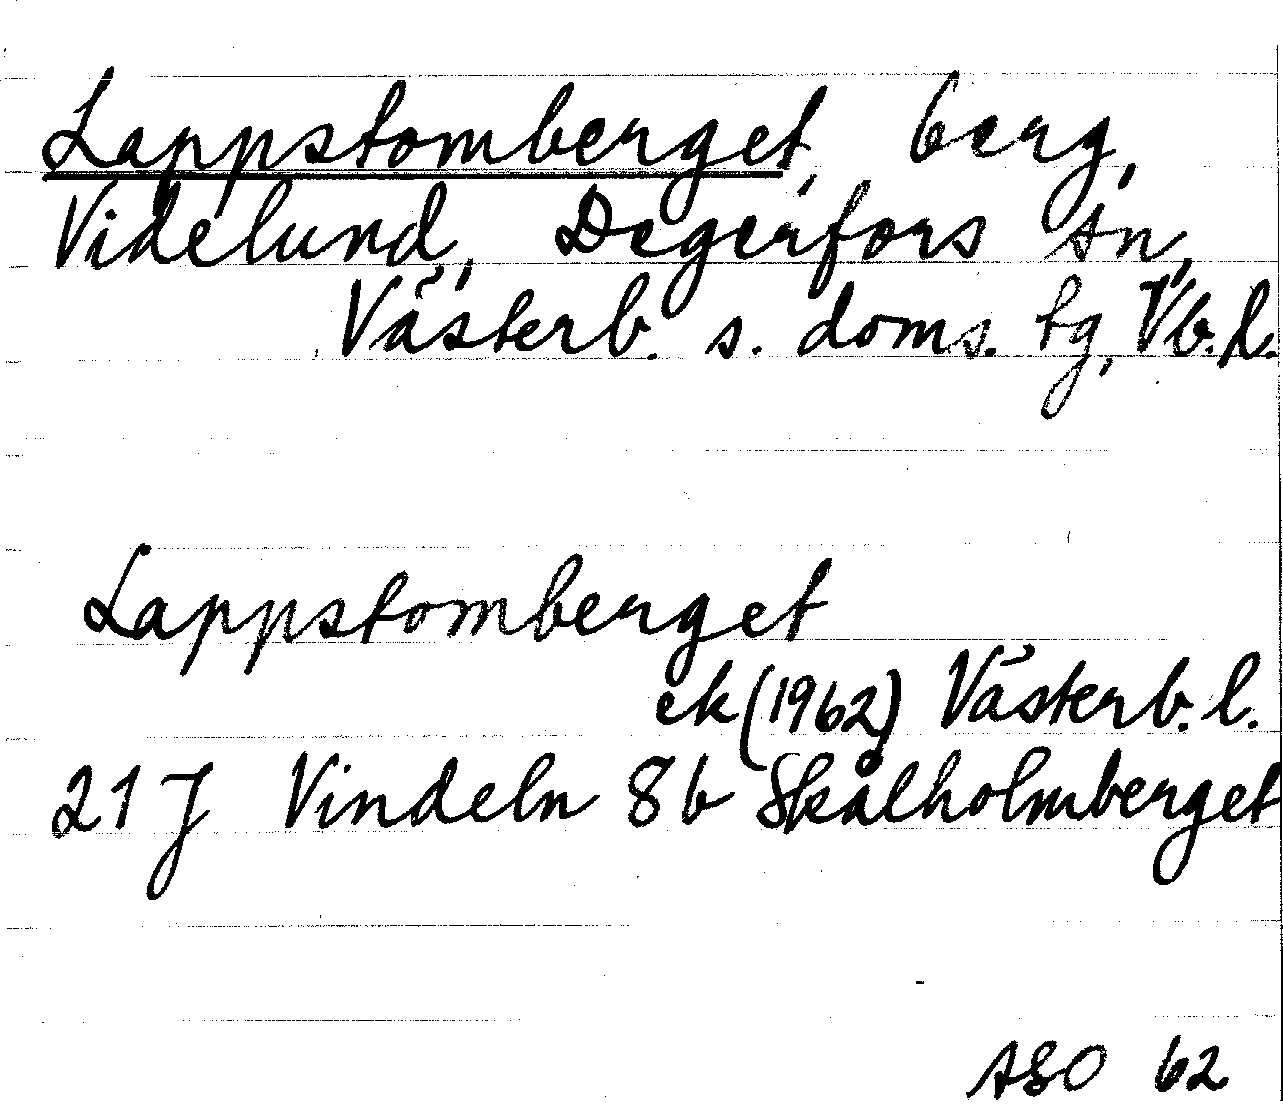 Lappstomberget, berg,
Videlund, Degerfors sn,
Västerb. s. doms. tg, Vb. l.
Lappstomberget
ek (1962) Västerb. l.
21 J Vindeln 8 b Skålholmberget
ASO 62